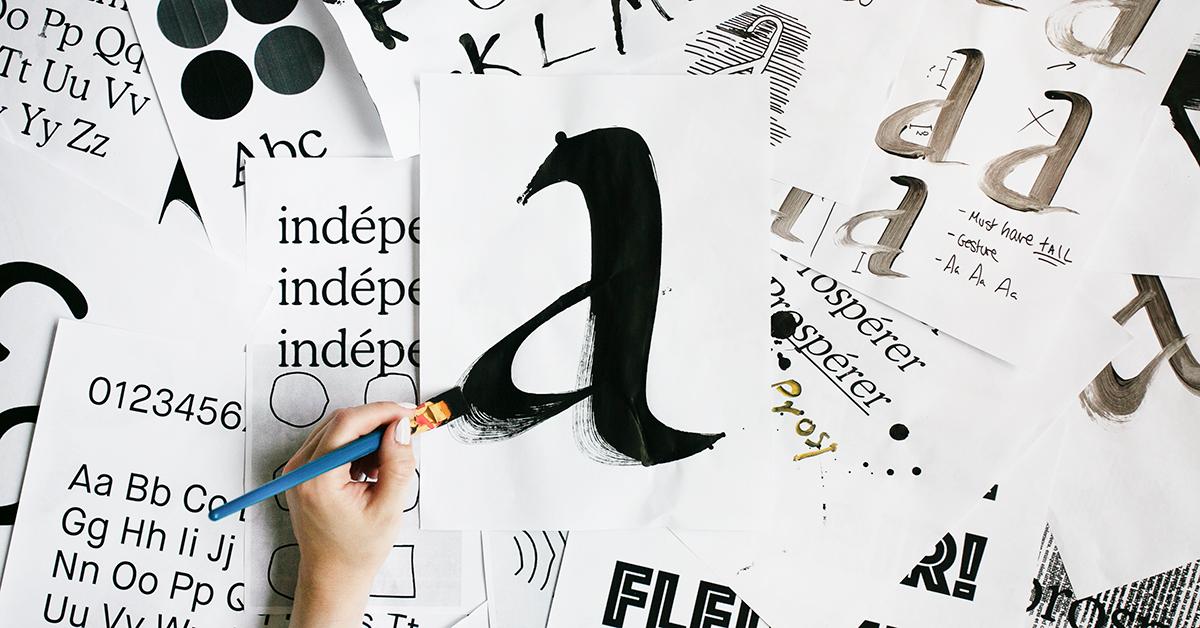 Oo Pp Qq
Tt Uu Vv
Yy Zz
Abc
K L
indépe
indépe
indépe
a
a
a
a
NO
- Must have TALL
- Gesture
- Aa Aa Aa
Prospérer
Prospérer
Pros
0123456
Aa Bb Cc
Gg Hh Ii Jj
Nn Oo Pp Q
Uu Vv W
Ss Tt
FLE
R!